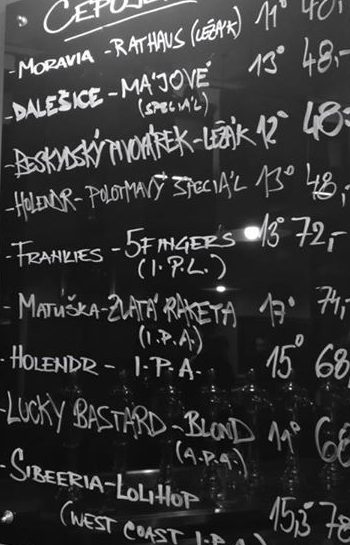 MORAVIA - RATHAUS (LEŽÁK) 11°
- DALEŠICE - MÁJOVÉ 13° 48,-
(SPECIÁL)
- BESKYDSKÝ PIVOVÁREK - LEŽÁK 12° 48
- HOLENDR - POLOTMAVÝ SPECIÁL 13° 48,-
- FRANKIES - 5FINGERS 13° 72,-
(I.P.L.)
MATUŠKA - ZLATÁ RAKETA 17° 74,-
(I.P.A.)
- HOLENDR - I.P.A. 15° 68
- LUCKY BASTARD - BLOND 11° 68
(A.P.A.)
- SIBEERIA - LOLIHOP 15,3° 78
(WEST COAST I.P.A.)